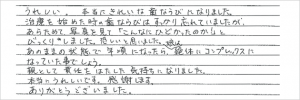 うれしい。 本当にきれいな歯ならびになりました。
治療を始めた時の歯ならびはすっかり忘れていましたが、
あらためて写真を見て「こんなにひどかったのか!」と
びっくりしました。恐しいと思いました。娘は
あのままの状態で年頃になったら、絶体にコンプレックスに
なっていた事でしょう。
親として責任をはたした気持ちになりました。
本当にうれしいです。感謝です。
ありがとうございました。